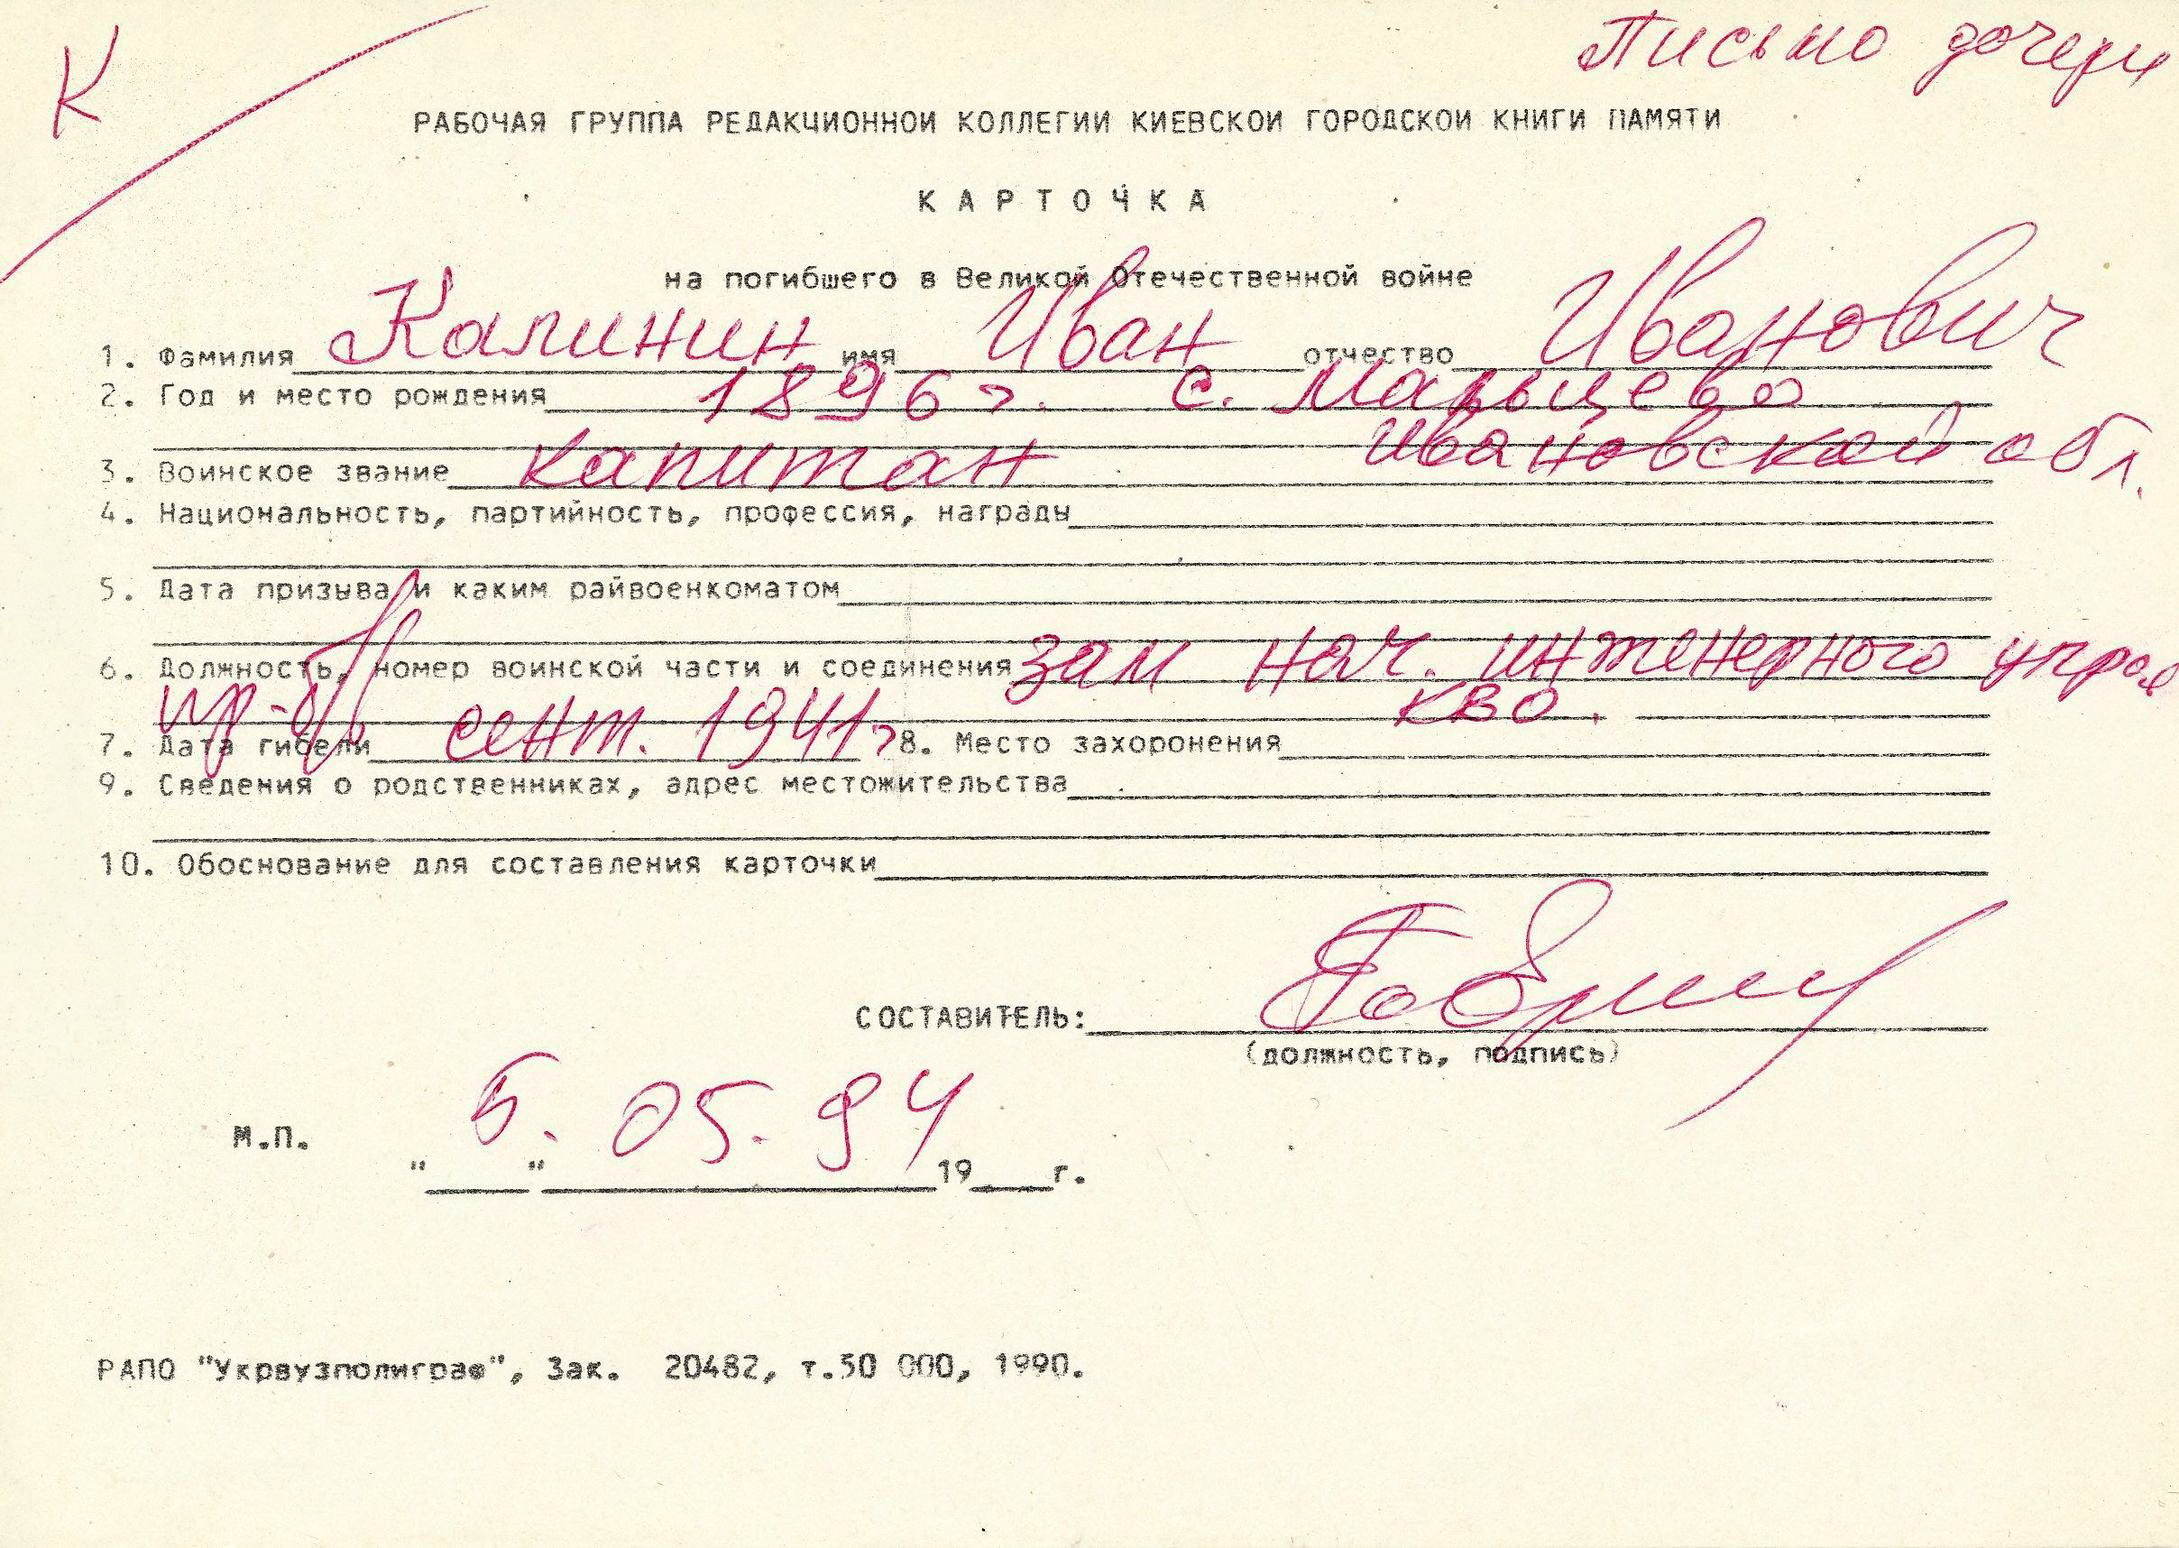 К
Письмо дочери
РАБОЧАЯ ГРУППА РЕДАКЦИОННОЙ КОЛЛЕГИИ КИЕВСКОЙ ГОРОДСКОЙ КНИГИ ПАМЯТИ
КАРТОЧКА
на погибшего в Великой Отечественной войне
1. Фамилия Калинин имя Иван отчество Иванович
2. Год и место рождения 1896 г. с. Марьцево
Ивановской обл.
3. Воинское звание капитан
4. Национальность, партийность, профессия, награды
5. Дата призыва и каким райвоенкоматом
6. Должность, номер воинской части и соединения зам нач. инженерного управ
КВО.
7. Дата гибели сент. 1941г 8. Место захоронения
9. Сведения о родственниках, адрес местожительства
10. Обоснование для составления карточки
СОСТАВИТЕЛЬ:
(должность, подпись)
М.П.
5. 05. 94
" " 19 г.
РАПО "Укрвузполиграф", Зак. 20482, т.50 000, 1990.